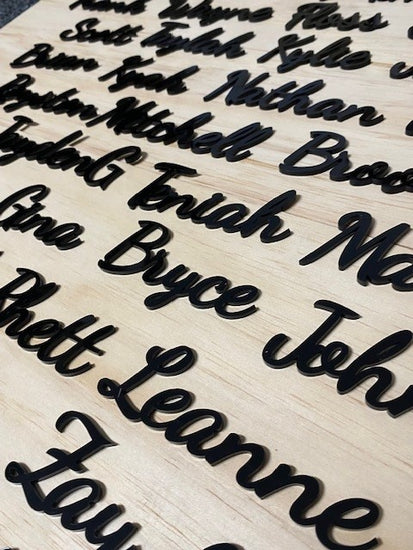 Wayne Floss
Scott Taylah Kylie
Brian Kyah Nathan
Peyton Mitchell Broo
JaydenG Teniah Ma
Gina Bryce John
Rhett Leanne
Zay